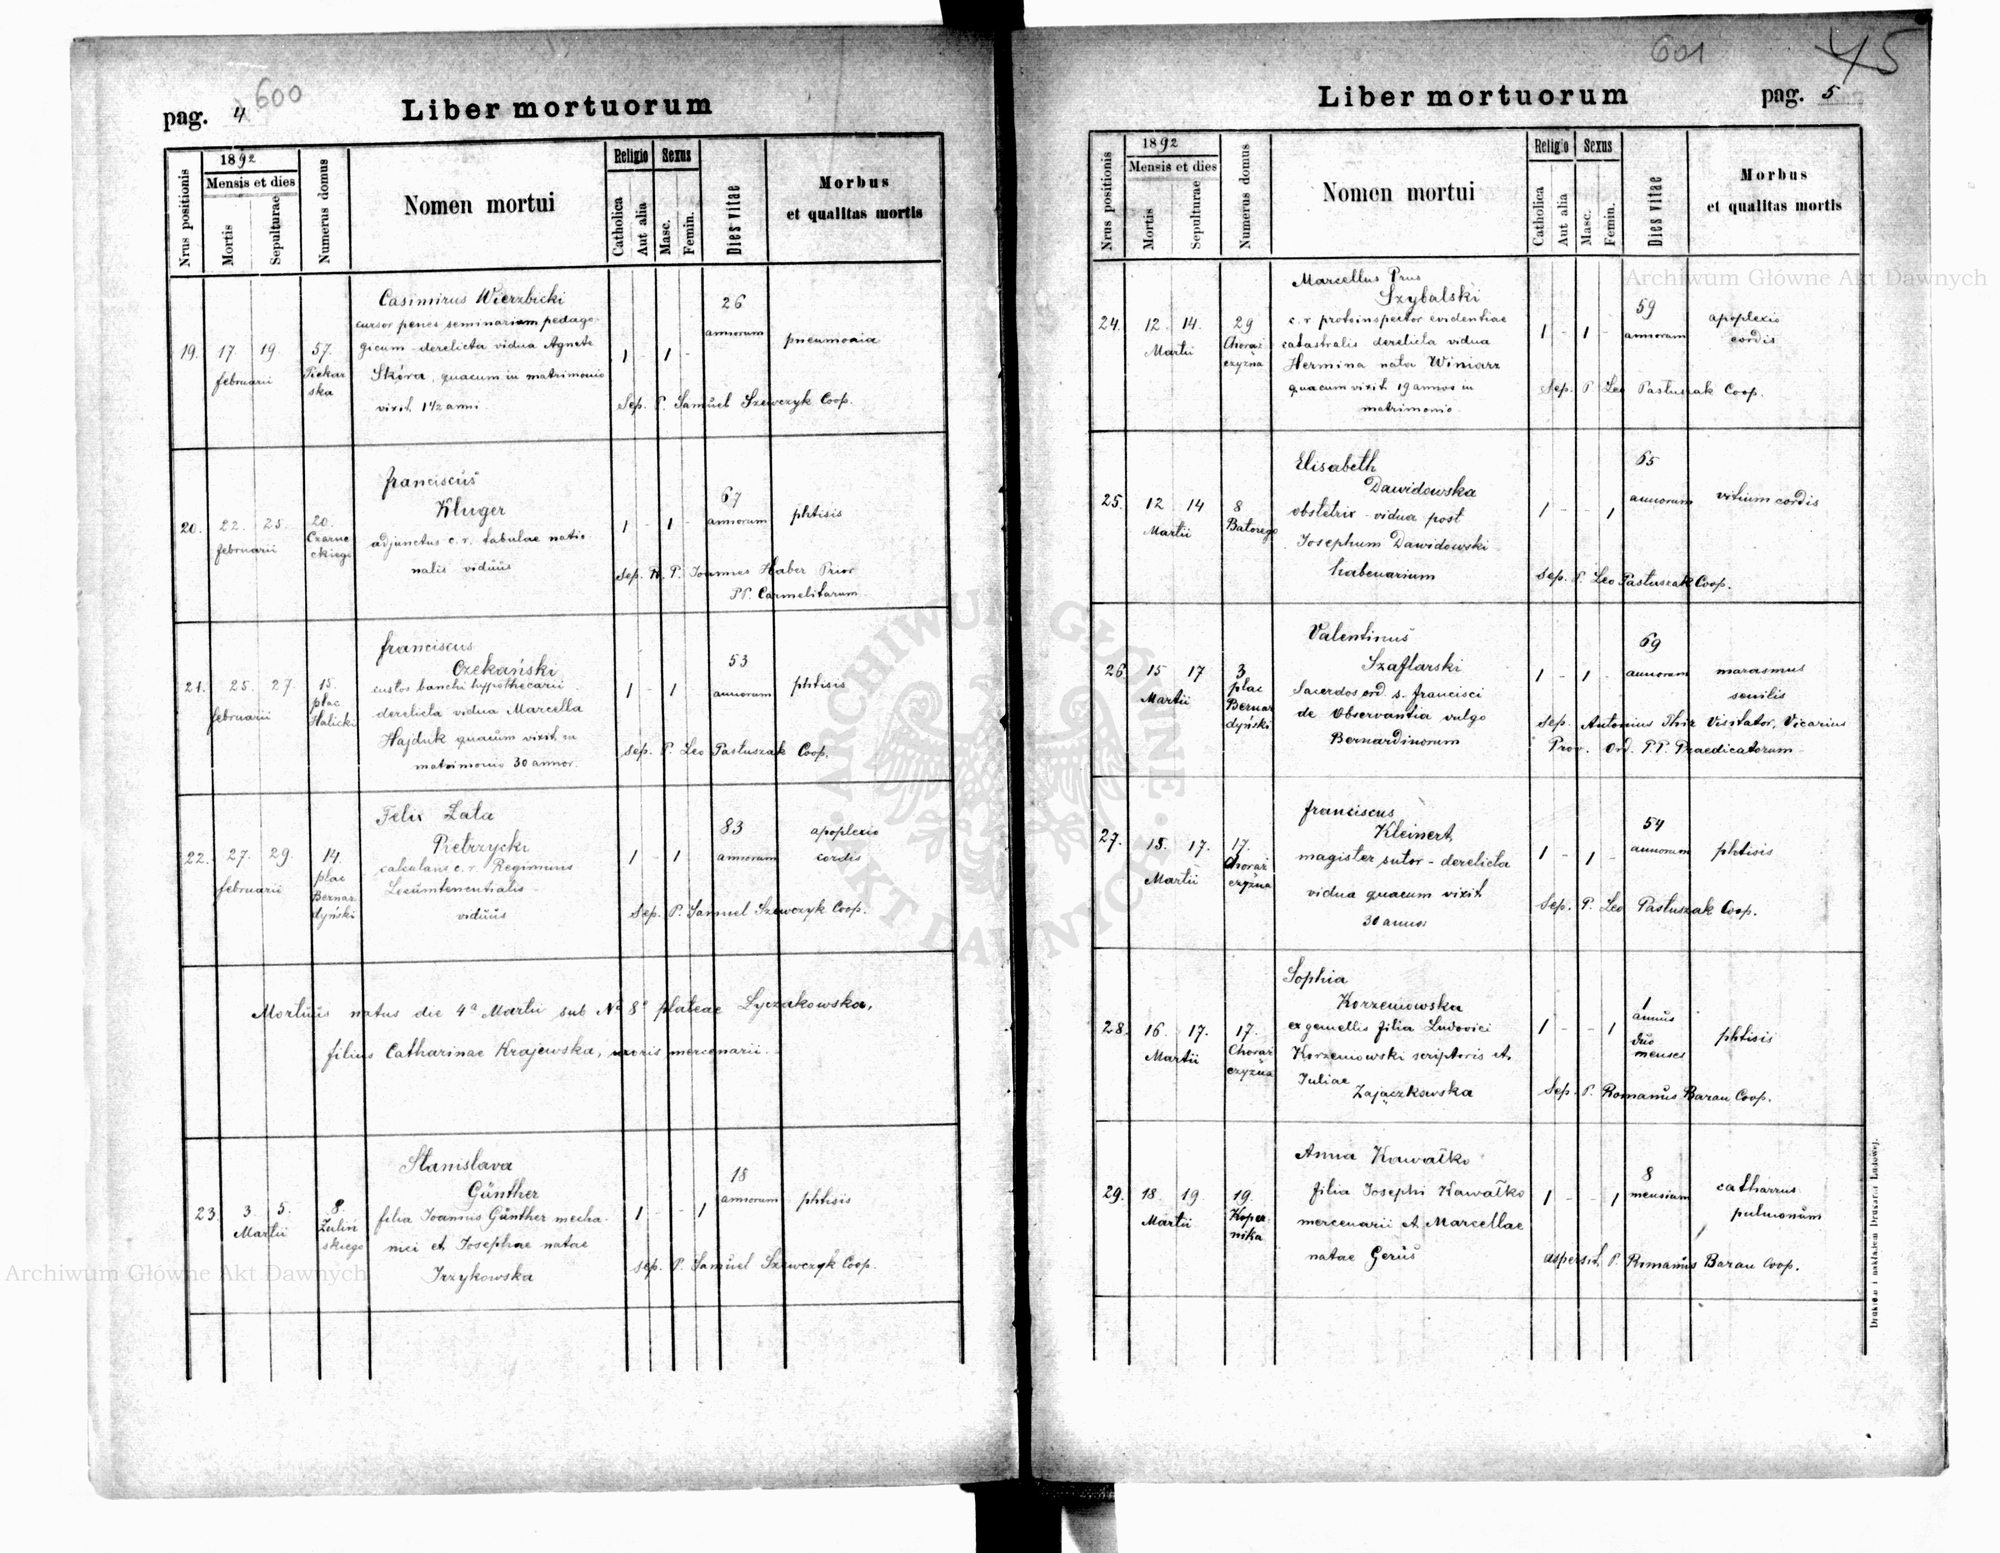 600
pag. 4
Liber mortuorum
Nrus positionis
1892
Mensis et dies
Mortis
Sepulturae
Numerus domus
Nomen mortui
Religio
Catholica
Aut alia
Sexus
Masc.
Femin.
Dies vitae
Morbus
et qualitas mortis
19. 17 19. februarii
57. Piekar
ska
Casimirus Wierzbicki
cursor penes seminarium pedago-
gicum - derelicta vidua Agnete
Skóra, quacum in matrimonio
vixit 1 1/2 anni
1 - 1 -
26
annorum
pneumonia
Sep. P. Samuel Szewczyk Coop.
20. 22. 25. februarii
20.
Czarne
ckiego
franciscus
Kluger
adjunctus c. r. tabulae natio
nalis viduus
1 - 1 -
67
annorum
phtisis
Sep. P. Joannes Haber Prior
PP. Carmelitarum
21. 25. 27. februarii
15.
plac
Halicki
franciscus
Czekański
custos banchi hypothecarii
derelicta vidua Marcella
Hajduk quacum vixit in
matrimonio 30 annor.
1 - 1
53
annorum
phtisis
Sep. P. Leo Pastuszak Coop.
22. 27. 29. februarii
14.
plac
Bernar
dyński
Felix Lata
Pietrzycki
calculans c. r. Regiminis
Locumtenentialis -
viduus
1 - 1 -
83
annorum
apoplexio
cordis
Sep. P. Samuel Szewczyk Coop.
Mortuus natus die 4a Martii sub No 8o plateae Lyczakowska,
filius Catharinae Krajewska, uxoris mercenarii.
23. 3. 5. Martii
8.
Zulin
skiego
Stanislava
Günther
filia Joannis Günther mecha-
nici et Josephae natae
Irzykowska
1 - - 1
18
annorum
phtisis
Sep. P. Samuel Szewczyk Coop.
601
45
Liber mortuorum
pag. 5
Nrus positionis
1892
Mensis et dies
Mortis
Sepulturae
Numerus domus
Nomen mortui
Religio
Catholica
Aut alia
Sexus
Masc.
Femin.
Dies vitae
Morbus
et qualitas mortis
24. 12. 14. Martii
29
Chorąż
czyzna
Marcellus Prus
Szybalski
c. r. protoinspector evidentiae
catastralis derelicta vidua
Hermina nata Winiarz
quacum vixit 19 annos in
matrimonio.
1 - 1 -
59
annorum
apoplexio
cordis
Sep. P. Leo Pastuszak Coop.
25. 12 14 Martii
8
Batorego
Elisabeth
Dawidowska
obstetrix - vidua post
Josephum Dawidowski
habenarium
1 - - 1
65
annorum
vitium cordis
Sep. P. Leo Pastuszak Coop.
26 15 17 Martii
3
plac
Bernar
dyński
Valentinus
Szaflarski
Sacerdos ord. s. francisci
de Observantia vulgo
Bernardinorum
1 - 1 -
69
annorum
marasmus
senilis
Sep. Antonius Thir Visitator, Vicarius
Prov. Ord. P.P. Praedicatorum -
27. 15. 17. Martii
17.
Chorąż
czyzna
franciscus
Kleinert
magister sutor - derelicta
vidua quacum vixit
30 annos
1 - 1 -
54
annorum
phtisis
Sep. P. Leo Pastuszak Coop.
28. 16. 17. Martii
17.
Chorąż
czyzna
Sophia
Korzeniowska
ex gemellis filia Ludovici
Korzeniowski scriptoris et
Juliae
Zajączkowska
1 - - 1
1
annus
duo
menses
phtisis
Sep. P. Romanus Baran Coop.
29. 18. 19. Martii
19.
Koper-
nika
Anna Kawałko
filia Josephi Kawałko
mercenarii et Marcellae
natae Gerus
1 - - 1
8
mensium
catharrus
pulmonum
aspersit P. Romanus Baran Coop.
Drukiem i nakładem Drukarni Ludowej.
Archiwum Główne Akt Dawnych
Archiwum Główne Akt Dawnych
ARCHIWUM GŁÓWNE AKT DAWNYCH